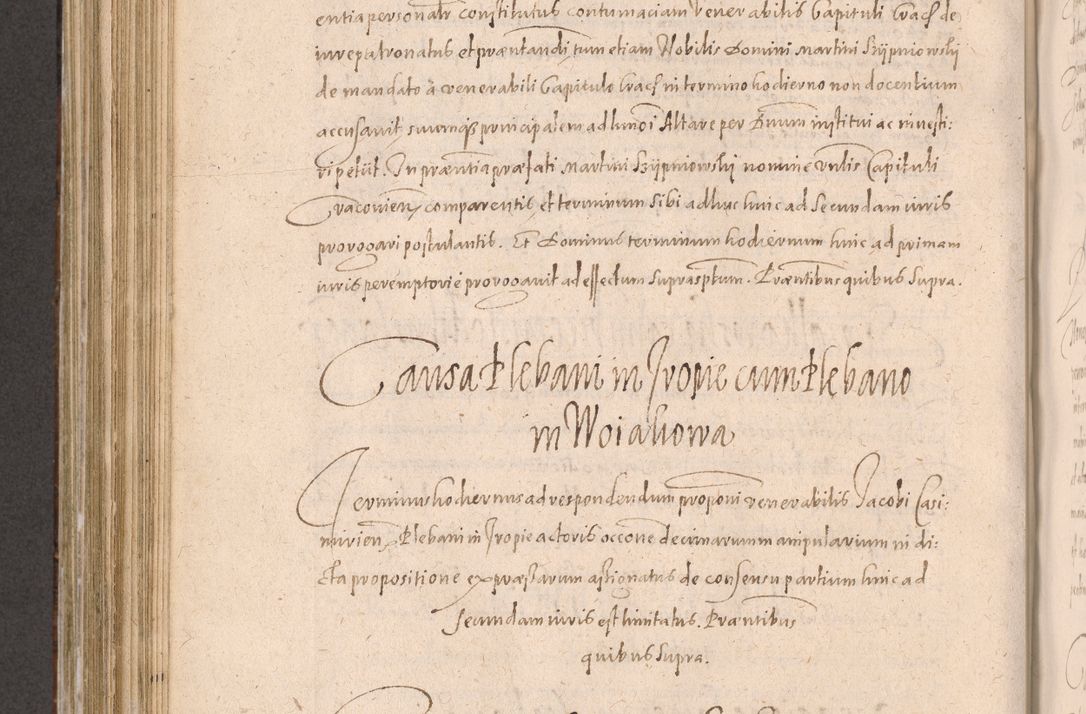 entia personaliter constitutus contumaciam venerabilis Capituli Crac̃ de
iurepatronatus et præntandi, tum etiam Nobilis Domini Martini Szijpniowskj
de mandato à venerabili Capitulo Crac̃ in termino hodierno non docentium
accusavit suumq̃ principalem ad hmõi Altare per Dnum institui ac investi:
ri petijt. In præntia præfati Martini Szijpniowskj nomine vnlis Capituli
Cracovien̄ comparentis, et terminum sibi adhuc huic ad Secundam iuris
prorogari postulantis. Et Dominus terminum hodiernum huic ad primam
iuris peremptorie prorogavit ad effectum suprasptum. Præntibus quibus Supra.
Causa Plebani in Jropie cum Plebano
in Woiakowa
Terminus hodiernus ad respondendum proponi venerabilis Jacobi Casi:
mirien̄ Plebani in Jropie actoris occõne decimarum manipularium in di:
cta propositione expræssarum assignatus de consensu partium huic ad
secundam iuris est limitatus. Præntibus
quibus Supra.